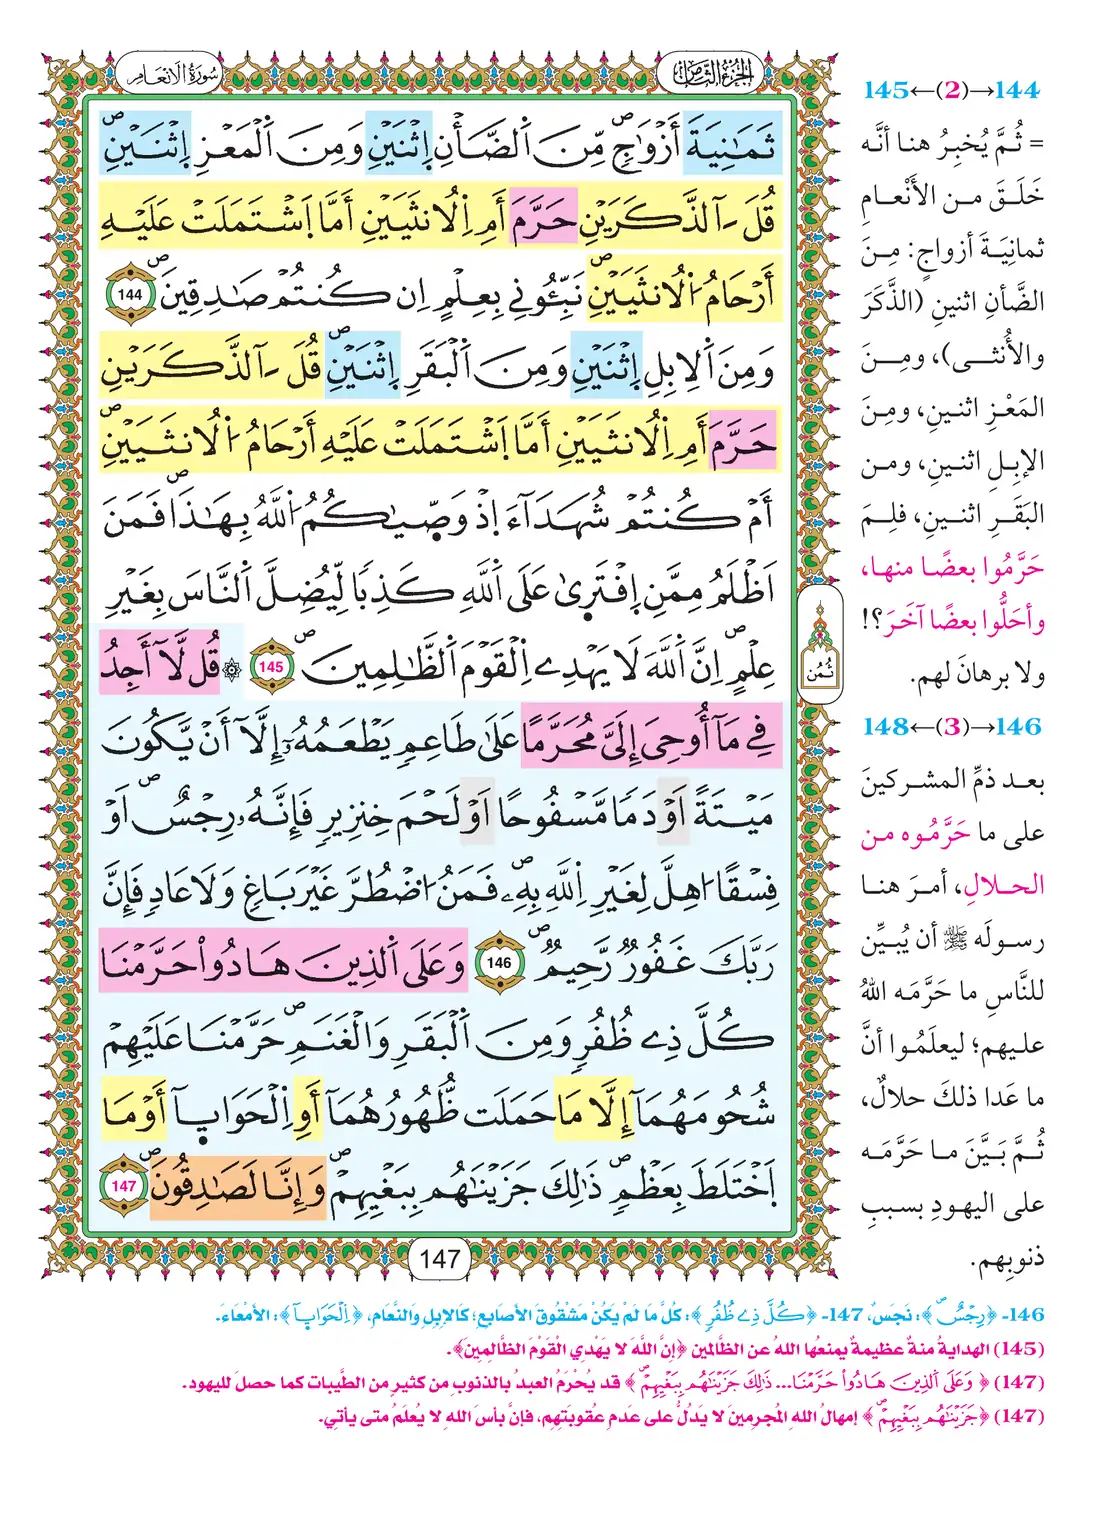 الجزء الثامن
سورة الأنعام
ثَمَٰنِيَةَ أَزْوَٰجٖ مِّنَ اَ۬لضَّأْنِ اِ۪ثْنَيْنِ وَمِنَ اَ۬لْمَعْزِ اِ۪ثْنَيْنِۖ
قُلَ ـٰٓالذَّكَرَيْنِ حَرَّمَ أَمِ اِ۬لُانثَيَيْنِ أَمَّا اَ۪شْتَمَلَتْ عَلَيْهِ
أَرْحَامُ اُ۬لُانثَيَيْنِۖ نَبِّـُٔونِي بِعِلْمٍ اِن كُنتُمْ صَٰدِقِينَۖ 144
وَمِنَ اَ۬لِابِلِ اِ۪ثْنَيْنِ وَمِنَ اَ۬لْبَقَرِ اِ۪ثْنَيْنِۖ قُلَ ـٰٓالذَّكَرَيْنِ
حَرَّمَ أَمِ اِ۬لُانثَيَيْنِ أَمَّا اَ۪شْتَمَلَتْ عَلَيْهِ أَرْحَامُ اُ۬لُانثَيَيْنِۖ
أَمْ كُنتُمْ شُهَدَآءَ اِذْ وَصّ۪يٰكُمُ اُ۬للَّهُ بِهَٰذَاۖ فَمَنَ
اَظْلَمُ مِمَّنِ اِ۪فْتَر۪يٰ عَلَى اَ۬للَّهِ كَذِباٗ لِّيُضِلَّ اَ۬لنَّاسَ بِغَيْرِ
عِلْمٍۖ اِنَّ اَ۬للَّهَ لَا يَهْدِے اِ۬لْقَوْمَ اَ۬لظَّٰلِمِينَۖ 145 ۞ قُل لَّآ أَجِدُ
فِے مَآ أُوحِيَ إِلَيَّ مُحَرَّماً عَلَىٰ طَاعِمٖ يَطْعَمُهُۥٓ إِلَّآ أَنْ يَّكُونَ
مَيْتَةً اَوْ دَماٗ مَّسْفُوحاً اَوْ لَحْمَ خِنزِيرٖ فَإِنَّهُۥ رِجْسٌۖ اَوْ
فِسْقاً اُهِلَّ لِغَيْرِ اِ۬للَّهِ بِهِۦۖ فَمَنُ اُ۟ضْطُرَّ غَيْرَ بَاغٖ وَلَا عَادٖ فَإِنَّ
رَبَّكَ غَفُورٞ رَّحِيمٞۖ 146 وَعَلَى اَ۬لذِينَ هَادُواْ حَرَّمْنَا
كُلَّ ذِے ظُفُرٖ وَمِنَ اَ۬لْبَقَرِ وَالْغَنَمِۖ حَرَّمْنَا عَلَيْهِمْ
شُحُومَهُمَآ إِلَّا مَا حَمَلَت ظُّهُورُهُمَآ أَوِ اِ۬لْحَوَايَآ أَوْ مَا
اَ۪خْتَلَطَ بِعَظْمٖۖ ذَٰلِكَ جَزَيْنَٰهُم بِبَغْيِهِمْۖ وَإِنَّا لَصَٰدِقُونَۖ 147
ثُمُن
147
144→(2)←145
= ثُمَّ يُخبِرُ هنا أنَّه
خَلَقَ من الأَنْعامِ
ثمانِيَةَ أزواجٍ: مِنَ
الضَّأنِ اثنينِ (الذَّكَرَ
والأُنثى)، ومِنَ
المَعْزِ اثنينِ، ومِنَ
الإبِلِ اثنينِ، ومن
البَقَرِ اثنينِ، فلِمَ
حَرَّمُوا بعضًا منها،
وأحَلُّوا بعضًا آخَرَ؟!
ولا برهانَ لهم.
146→(3)←148
بعد ذمِّ المشركينَ
على ما حَرَّمُوه من
الحلالِ، أمرَ هنا
رسولَه ﷺ أن يُبيِّن
للنَّاسِ ما حَرَّمَه اللهُ
عليهم؛ ليعلَمُوا أنَّ
ما عَدا ذلكَ حلالٌ،
ثُمَّ بَيَّنَ ما حَرَّمَه
على اليهودِ بسببِ
ذنوبِهم.
146- ﴿رِجْسٌۖ﴾: نَجَسٌ، 147- ﴿كُلَّ ذِے ظُفُرٖ﴾: كُلَّ مَا لَمْ يَكُنْ مَشْقُوقَ الأصَابِعِ؛ كَالإِبِلِ والنَّعَامِ، ﴿اِ۬لْحَوَايَآ﴾: الأَمْعَاءَ.
(145) الهدايةُ منةٌ عظيمةٌ يمنعُها اللهُ عن الظَّالمين ﴿إِنَّ اللَّهَ لا يَهْدِي الْقَوْمَ الظَّالِمِينَ﴾.
(147) ﴿وَعَلَى اَ۬لذِينَ هَادُواْ حَرَّمْنَا... ذَٰلِكَ جَزَيْنَٰهُم بِبَغْيِهِمْۖ﴾ قد يُحْرَمُ العبدُ بالذنوبِ من كثيرٍ من الطَّيبات كما حصلَ لليهود.
(147) ﴿جَزَيْنَٰهُم بِبَغْيِهِمْۖ﴾ إمهالُ اللهِ المُجرِمينَ لا يَدُلُّ على عَدمِ عُقوبَتِهِم، فإنَّ بأسَ اللهِ لا يُعلَمُ متى يأتي.